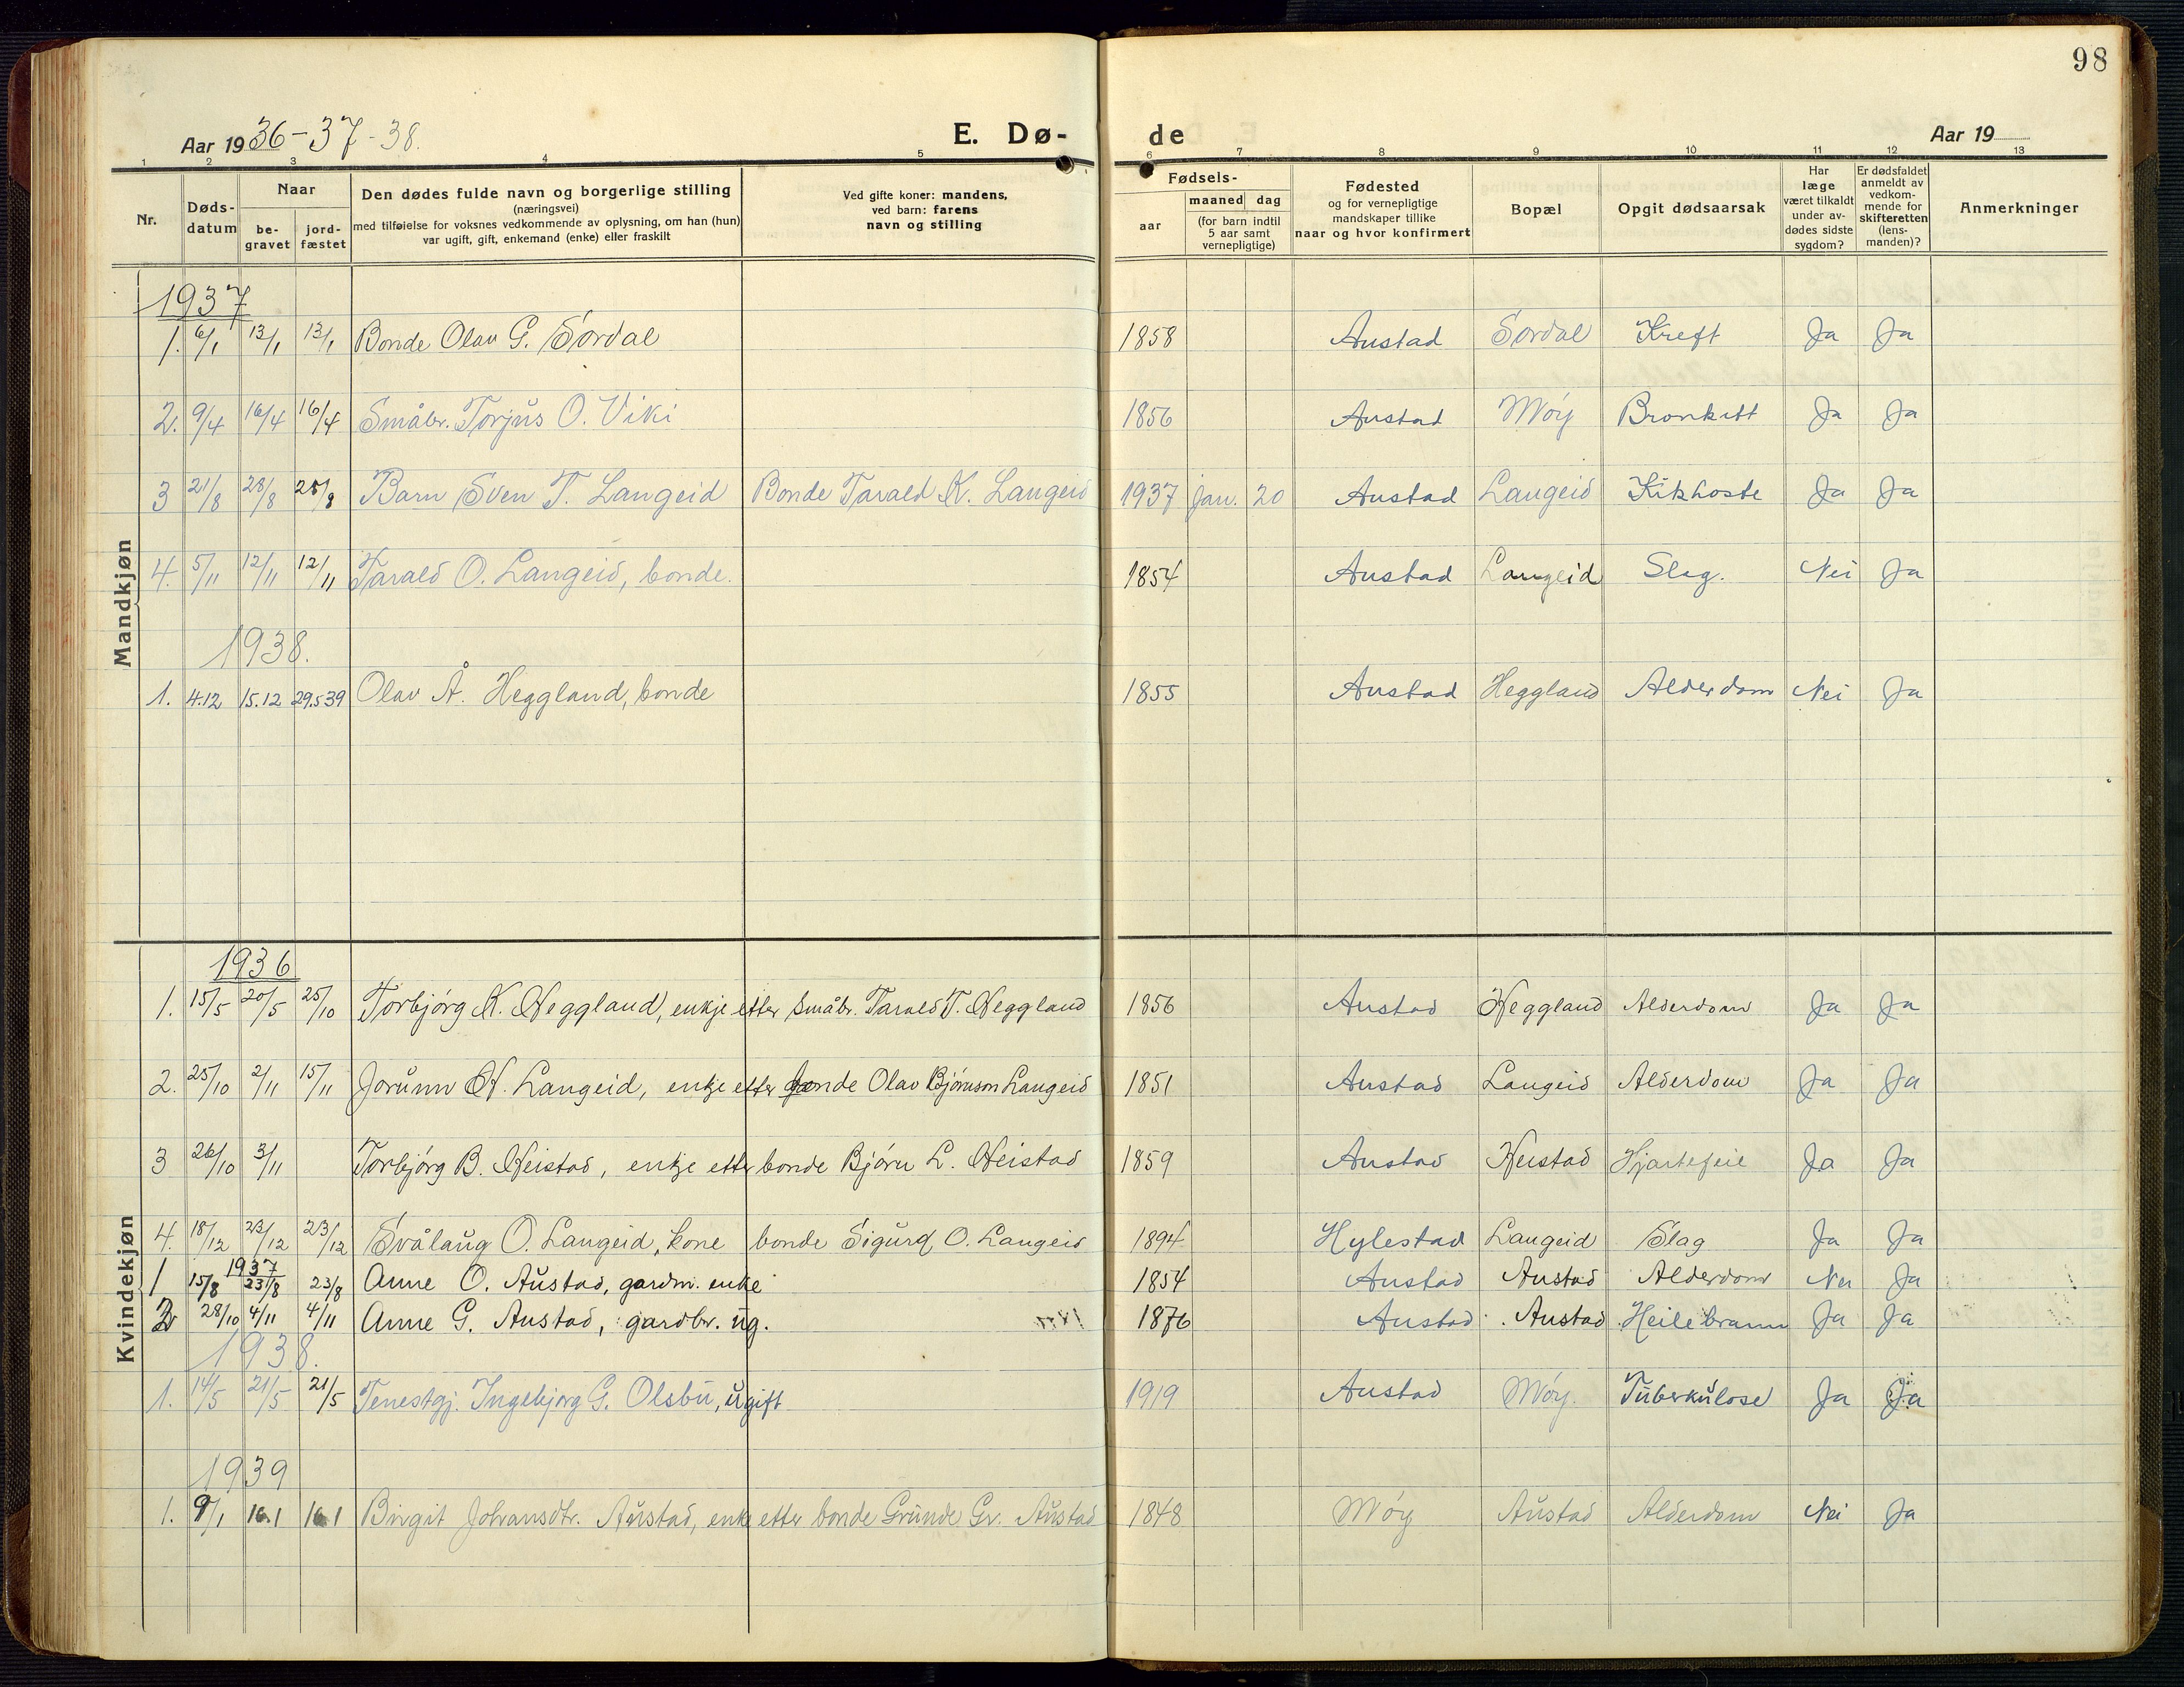 98
Aar 1936-37-38.
E. Dø-
de
Aar 19
1 2 3 4 5 6 7 8 9 10 11 12 13
Nr.
Døds-
datum
Naar
be-
gravet
jord-
fæstet
Den dødes fulde navn og borgerlige stilling
(næringsvei)
med tilføielse for voksnes vedkommende av oplysning, om han (hun)
var ugift, gift, enkemand (enke) eller fraskilt
Ved gifte koner: mandens,
ved barn: farens
navn og stilling
Fødsels-
aar
maaned dag
(for barn indtil
5 aar samt
vernepligtige)
Fødested
og for vernepligtige
mandskaper tillike
naar og hvor konfirmert
Bopæl
Opgit dødsaarsak
Har
læge
været tilkaldt
under av-
dødes sidste
sygdom?
Er dødsfaldet
anmeldt av
vedkom-
mende for
skifteretten
(lens-
manden)?
Anmerkninger
Mandkjøn
1937
1. 6/1 13/1 13/1 Bonde Olav G. Sordal 1858 Austad Sordal Kreft Ja Ja
2. 9/4 16/4 16/4 Småbr. Torjus O. Viki 1856 Austad Møy Bronkitt Ja Ja
3 21/8 28/8 28/8 Barn Sven T. Langeid Bonde Tarald K. Langeid 1937 jan. 20 Austad Langeid Kikhoste Ja Ja
4. 5/11 12/11 12/11 Tarald O. Langeid, bonde. 1854 Austad Langeid Slag. Nei Ja
1938.
1. 4.12 15.12 29.5 39 Olav Å. Heggland, bonde 1855 Austad Heggland Alderdom Nei Ja
Kvindekjøn
1936
1. 15/5 20/5 25/10 Torbjørg K. Heggland, enkje etter småbr. Tarald T. Heggland 1856 Austad Heggland Alderdom Ja Ja
2. 25/10 2/11 15/11 Jorunn H. Langeid, enkje etter bonde Olav Bjørnson Langeid 1851 Austad Langeid Alderdom Ja Ja
3 26/10 3/11 Torbjørg B. Heistad, enkje etter bonde Bjørn L. Heistad 1859 Austad Heistad Hjartefeil Ja Ja
4. 18/12 23/12 23/12 Svålaug O. Langeid, kone bonde Sigurd O. Langeid 1894 Hylestad Langeid Slag Ja Ja
1937
1 15/8 23/8 23/8 Anne O. Austad, gardm. enke 1854 Austad Austad Alderdom Nei Ja
2 28/10 4/11 4/11 Anne G. Austad, gardbr. ug. 1876 Austad Austad Heilebrann Ja Ja
1938.
1. 14/5 21/5 21/5 Tenestgj. Ingebjørg G. Olsbu, ugift 1919 Austad Møy. Tuberkulose Ja Ja
1939
1. 9/1 16.1 16.1 Birgit Johansdtr. Austad, enke etter bonde Grunde Gr. Austad 1848 Møy Austad Alderdom Nei Ja